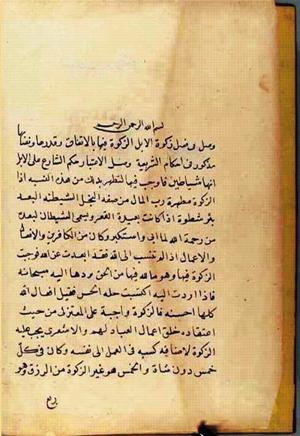 بسم الله الرحمن الرحيم
وصل وفصل زكوة الابل الزكوة فيها بالاتفاق وقدرها ونصابها
مذكور في احكام الشريعة وصل الاعتبار حكم الشارع على الابل
انها شياطين فاوجب فيها الزكوة لتطهر بذلك من هذه النسبة اذ
الزكوة مطهرة رب المال من صفة البخل الشيطنة البعد
بئر شطون اذا كانت بعيدة القعر وسمي الشيطان لبعده
من رحمة الله لما ابى واستكبر وكان من الكافرين والافعال
والاعمال اذا لم تنسب الى الله فقد ابعدت عن الله فوجبت
الزكوة فيها وهو ما لله فيها من الحق بردها اليه سبحانه
فاذا اردت اليه اكتسبت حلة الحسن فقيل افعال الله
كلها حسنة فالزكوة واجبة على المعتزلي من حيث
اعتقاده خلق اعمال العباد لهم والاشعري يجب عليه
الزكوة لاضافة كسبه في العمل الى نفسه وكان في كل
خمس ذود شاة والخمس هو عين الزكوة من الورق هو